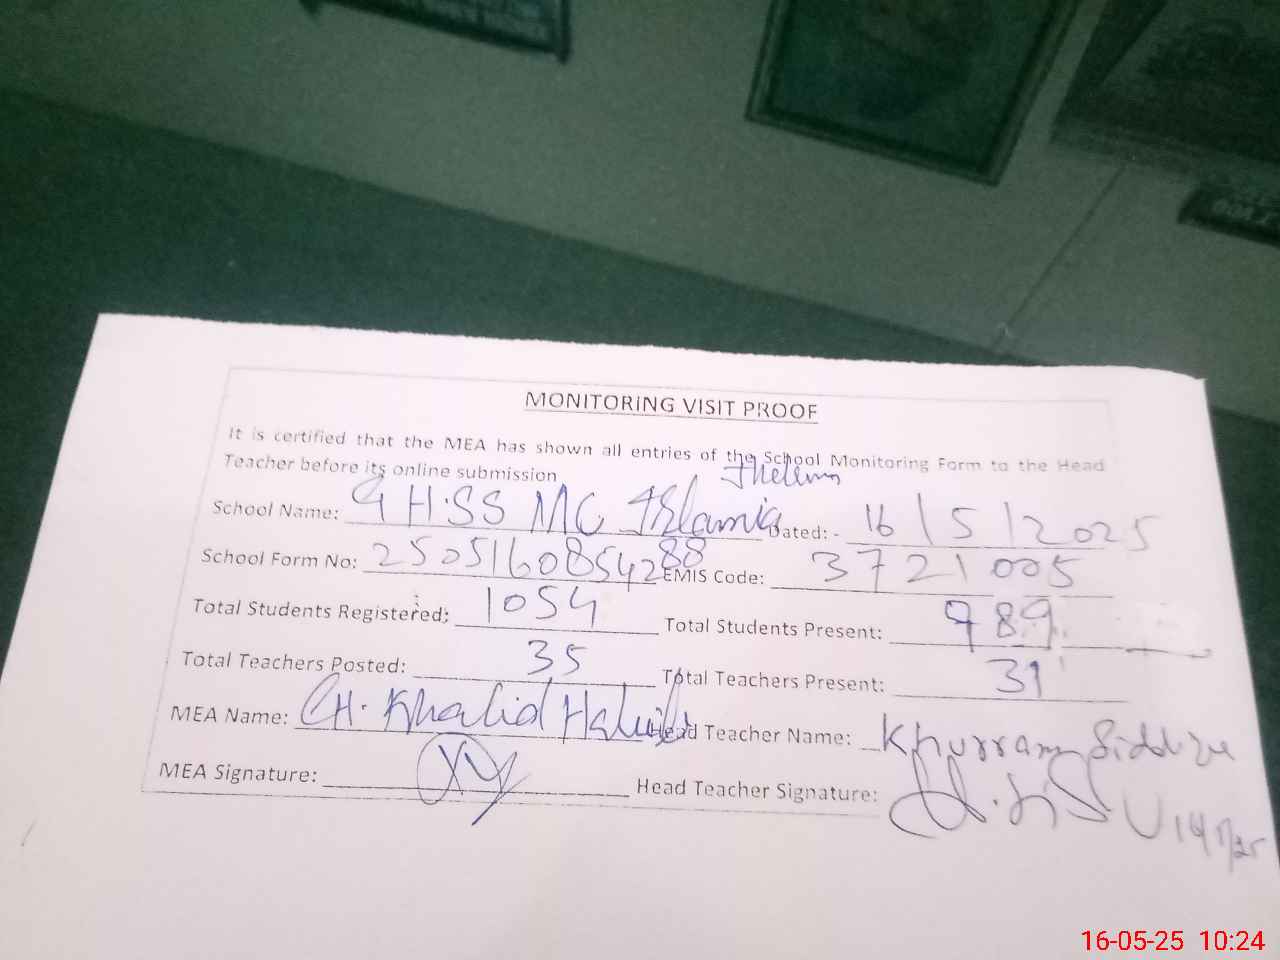 MONITORING VISIT PROOF
It is certified that the MEA has shown all entries of the School Monitoring Form to the Head
Teacher before its online submission
Jhelum
School Name: GHSS MC Islamia Dated: - 16/5/2025
School Form No: 250516085428 88 EMIS Code: 3721005
Total Students Registered: 1054 Total Students Present: 989
Total Teachers Posted: 35 Total Teachers Present: 31
MEA Name: CH. Khalid Head Teacher Name: Khurram
MEA Signature: Head Teacher Signature:
16-05-25 10:24